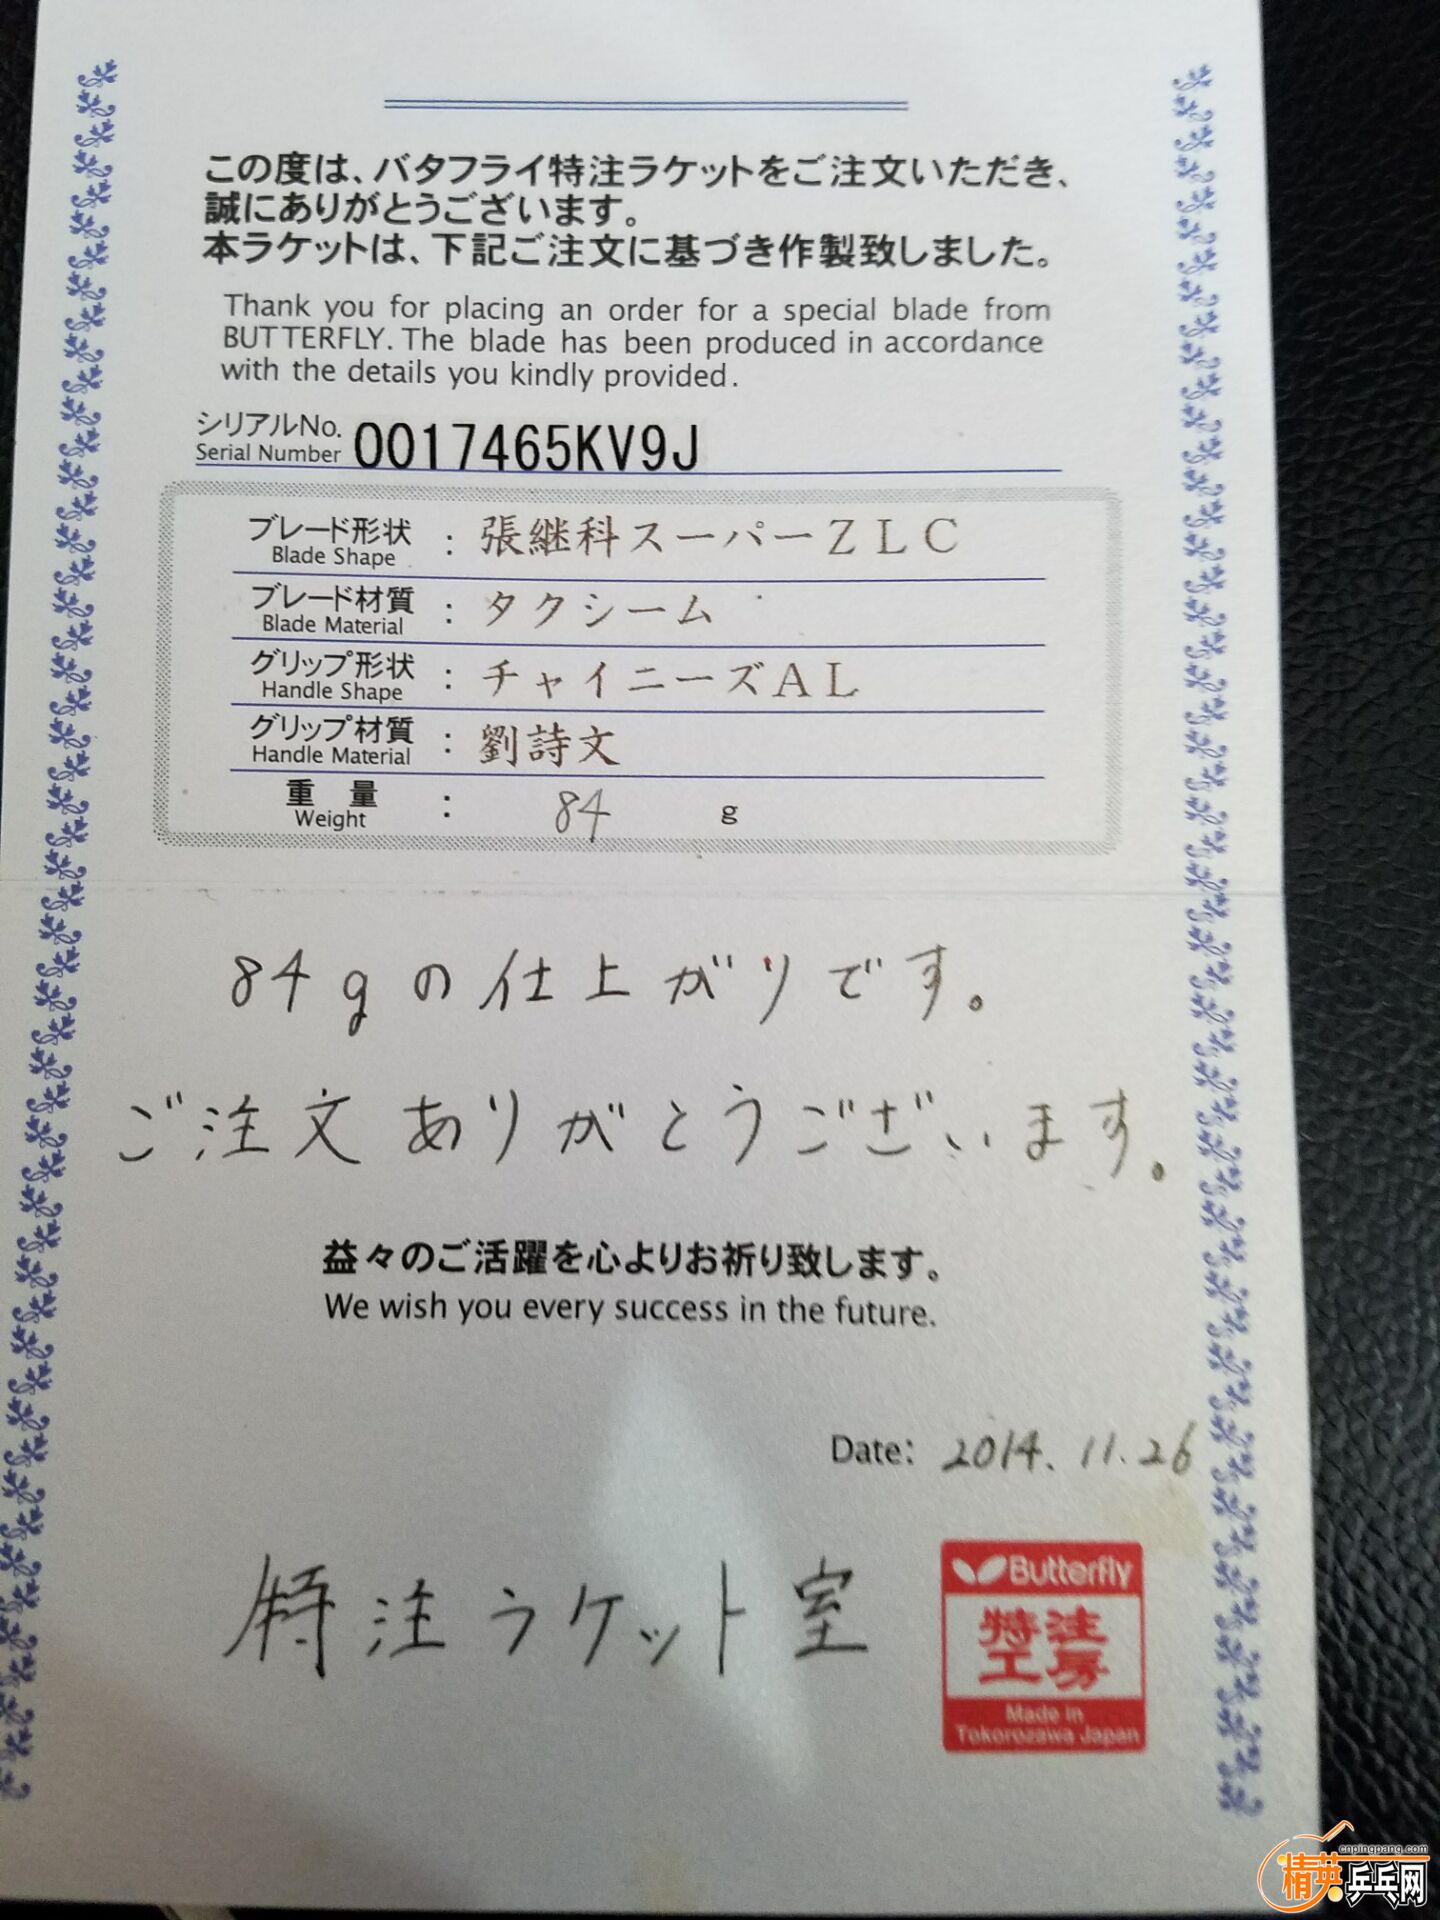 この度は、バタフライ特注ラケットをご注文いただき、
誠にありがとうございます。
本ラケットは、下記ご注文に基づき作製致しました。
Thank you for placing an order for a special blade from
BUTTERFLY. The blade has been produced in accordance
with the details you kindly provided.
シリアルNo.
Serial Number 0017465KV9J
ブレード形状 : 張継科スーパーZLC
Blade Shape
ブレード材質 : タクシーム
Blade Material
グリップ形状 : チャイニーズAL
Handle Shape
グリップ材質 : 劉詩文
Handle Material
重量 : 84 g
Weight
84gの仕上がりです。
ご注文ありがとうございます。
益々のご活躍を心よりお祈り致します。
We wish you every success in the future.
Date: 2014.11.26
特注ラケット室
Butterfly
特注
工房
Made in
Tokorozawa Japan
cnpingpang.com
精英乒乓网